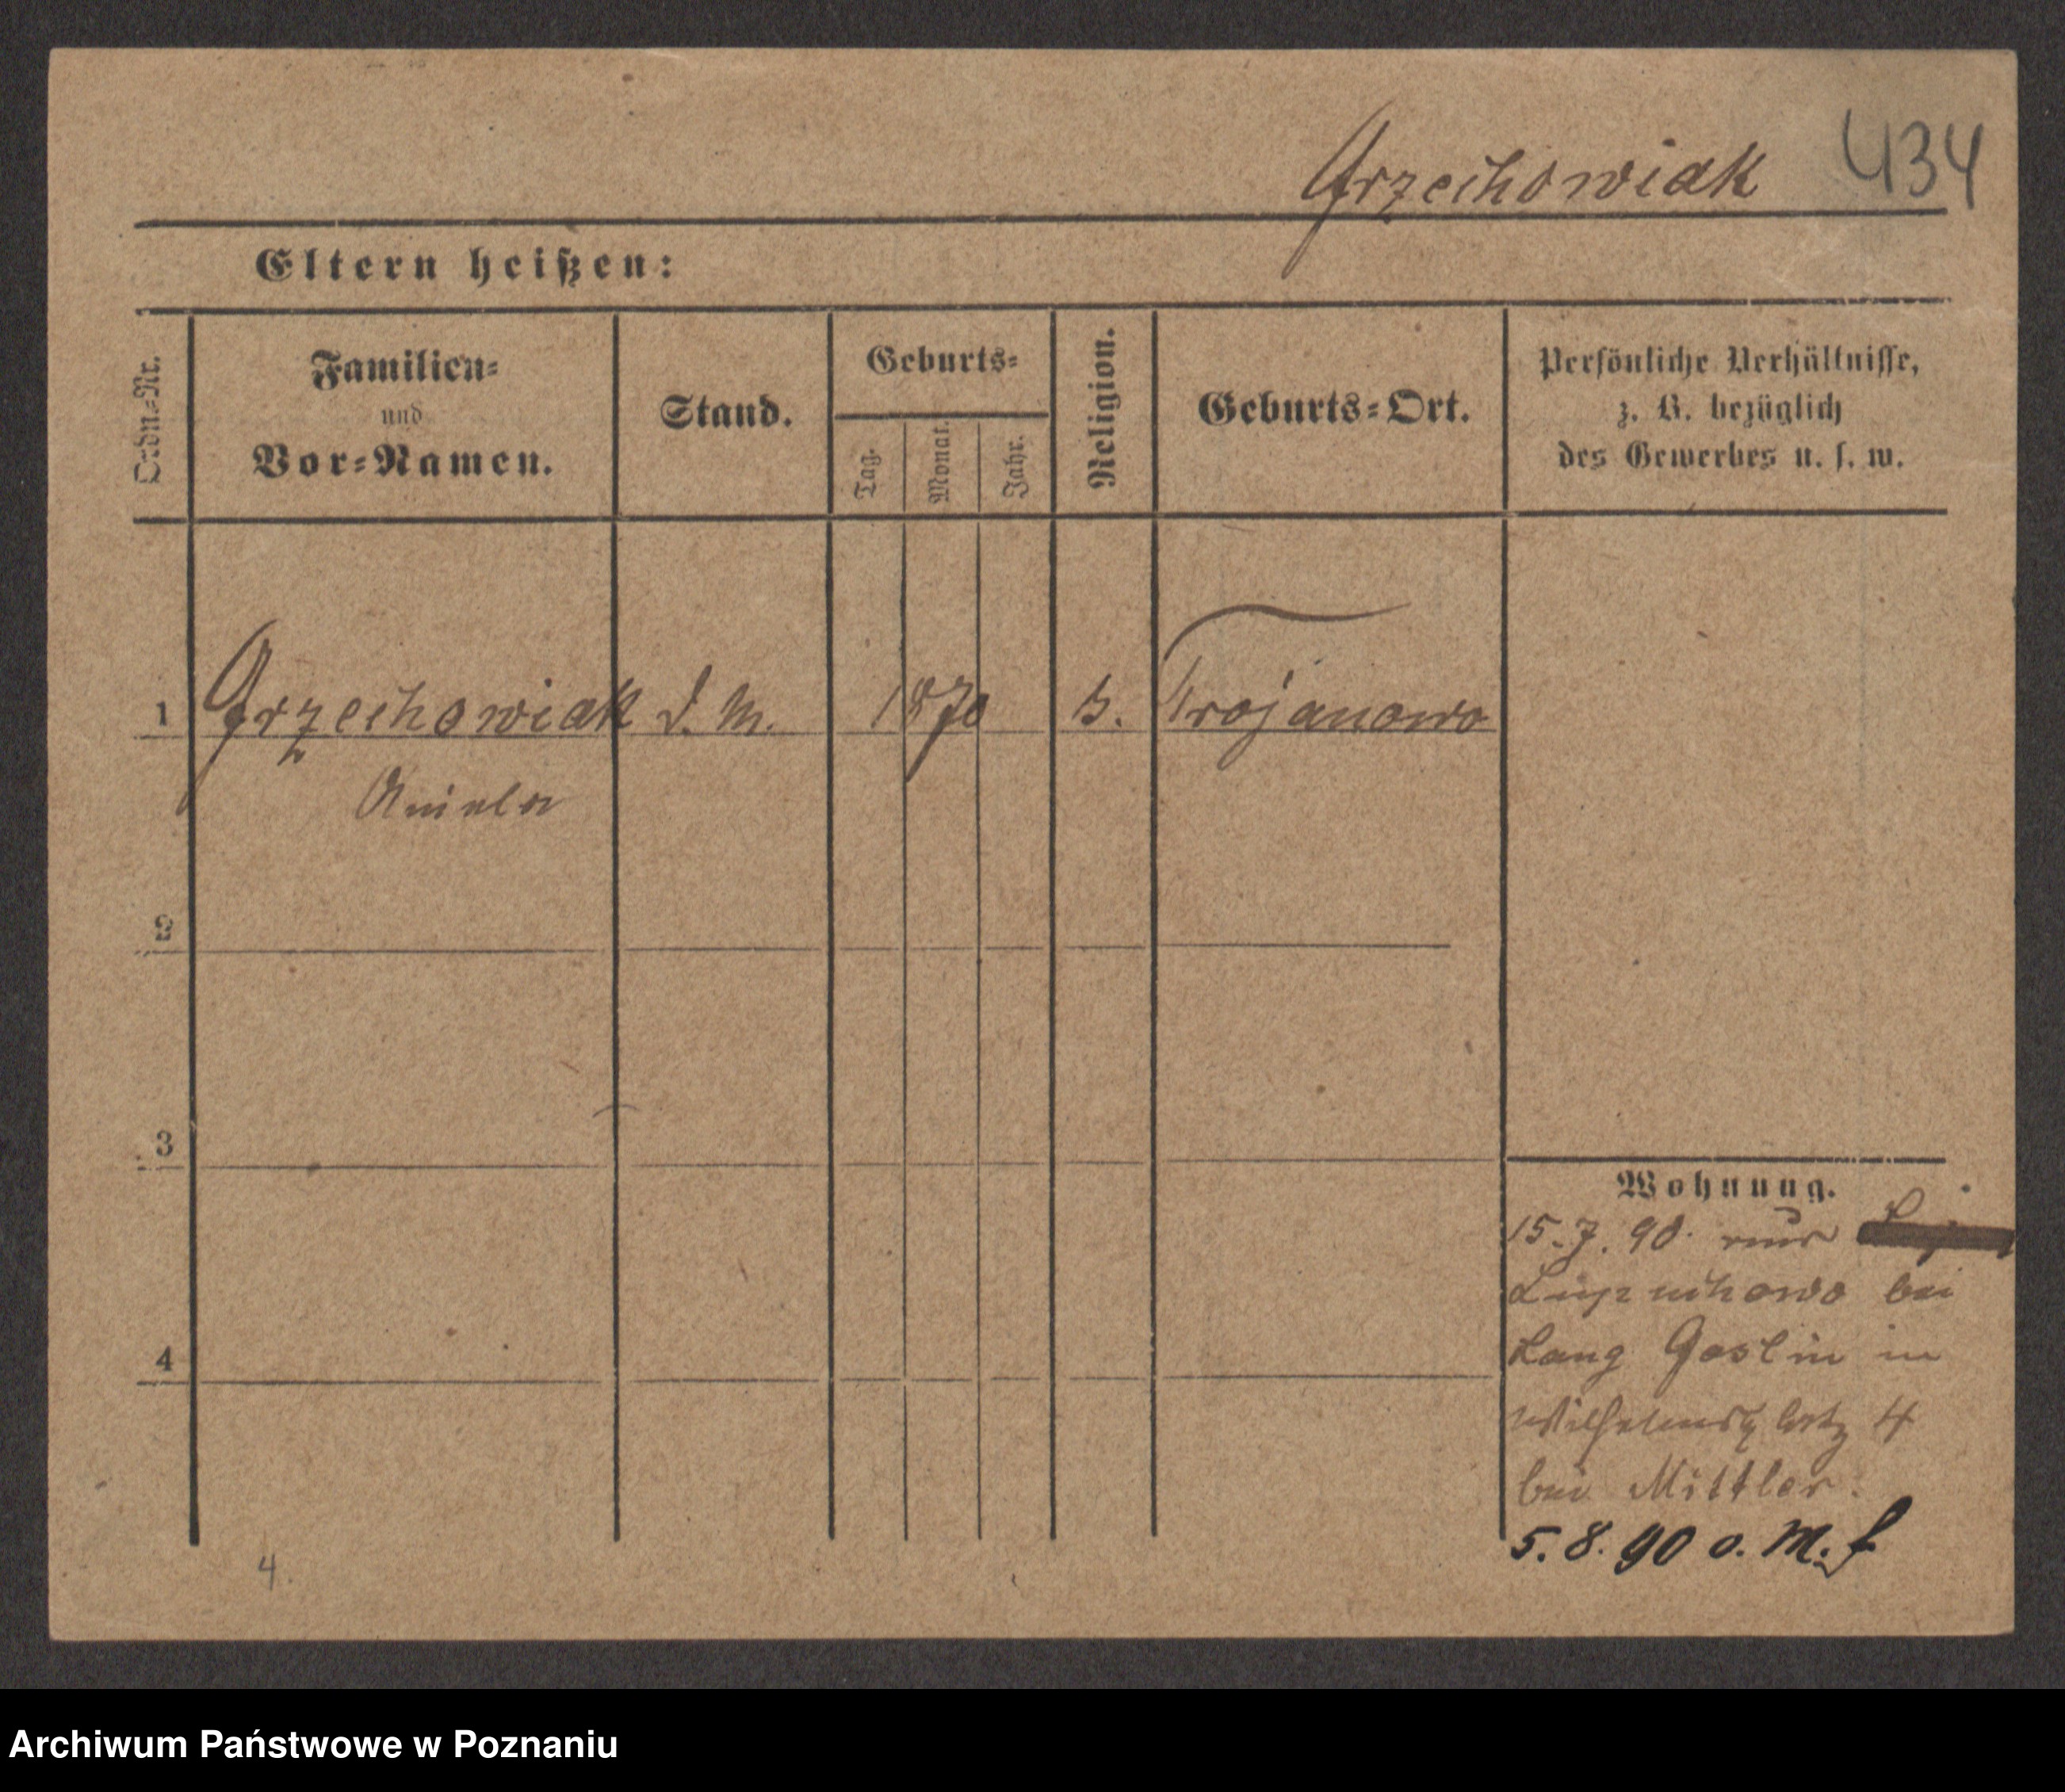 Grzechowiak 434
Eltern heißen:
Ordn.-Nr.
Familien-
und
Vor-Namen.
Stand.
Geburts-
Tag.
Monat.
Jahr.
Religion.
Geburts-Ort.
Persönliche Verhältnisse,
z. B. bezüglich
des Gewerbes u. s. w.
1 Grzechowiak d. M. 1870 Trojanowo
Aniela
2
3
4
Wohnung.
15.7.90. aus
bei
Lang Goslin in
Wilhelmsplatz 4
bei Mittler.
5.8.90 o. M. f
4.
Archiwum Państwowe w Poznaniu